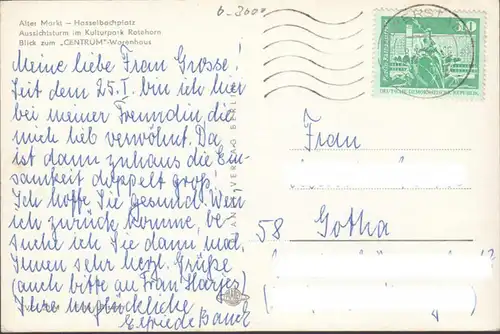 Alter Markt – Hasselbachplatz
Aussichtsturm im Kulturpark Rotehorn
Blick zum „CENTRUM"-Warenhaus
6-3000
Meine liebe Frau Grosse!
Seit dem 25.I. bin ich hier
bei meiner Freundin die
mich lieb verwöhnt. Da
ist dann zuhaus die Ein-
samkeit doppelt groß.
Ich hoffe Sie gesund. Wenn
ich zurück komme, be-
suche ich Sie dann mal.
Ihnen sehr herzl. Grüße
(auch bitte an Frau Harjes)
Ihre unglückliche
Elfriede Bauch
VERLAG BERLIN
10
DEUTSCHE DEMOKRATISCHE REPUBLIK
Frau
58 Gotha